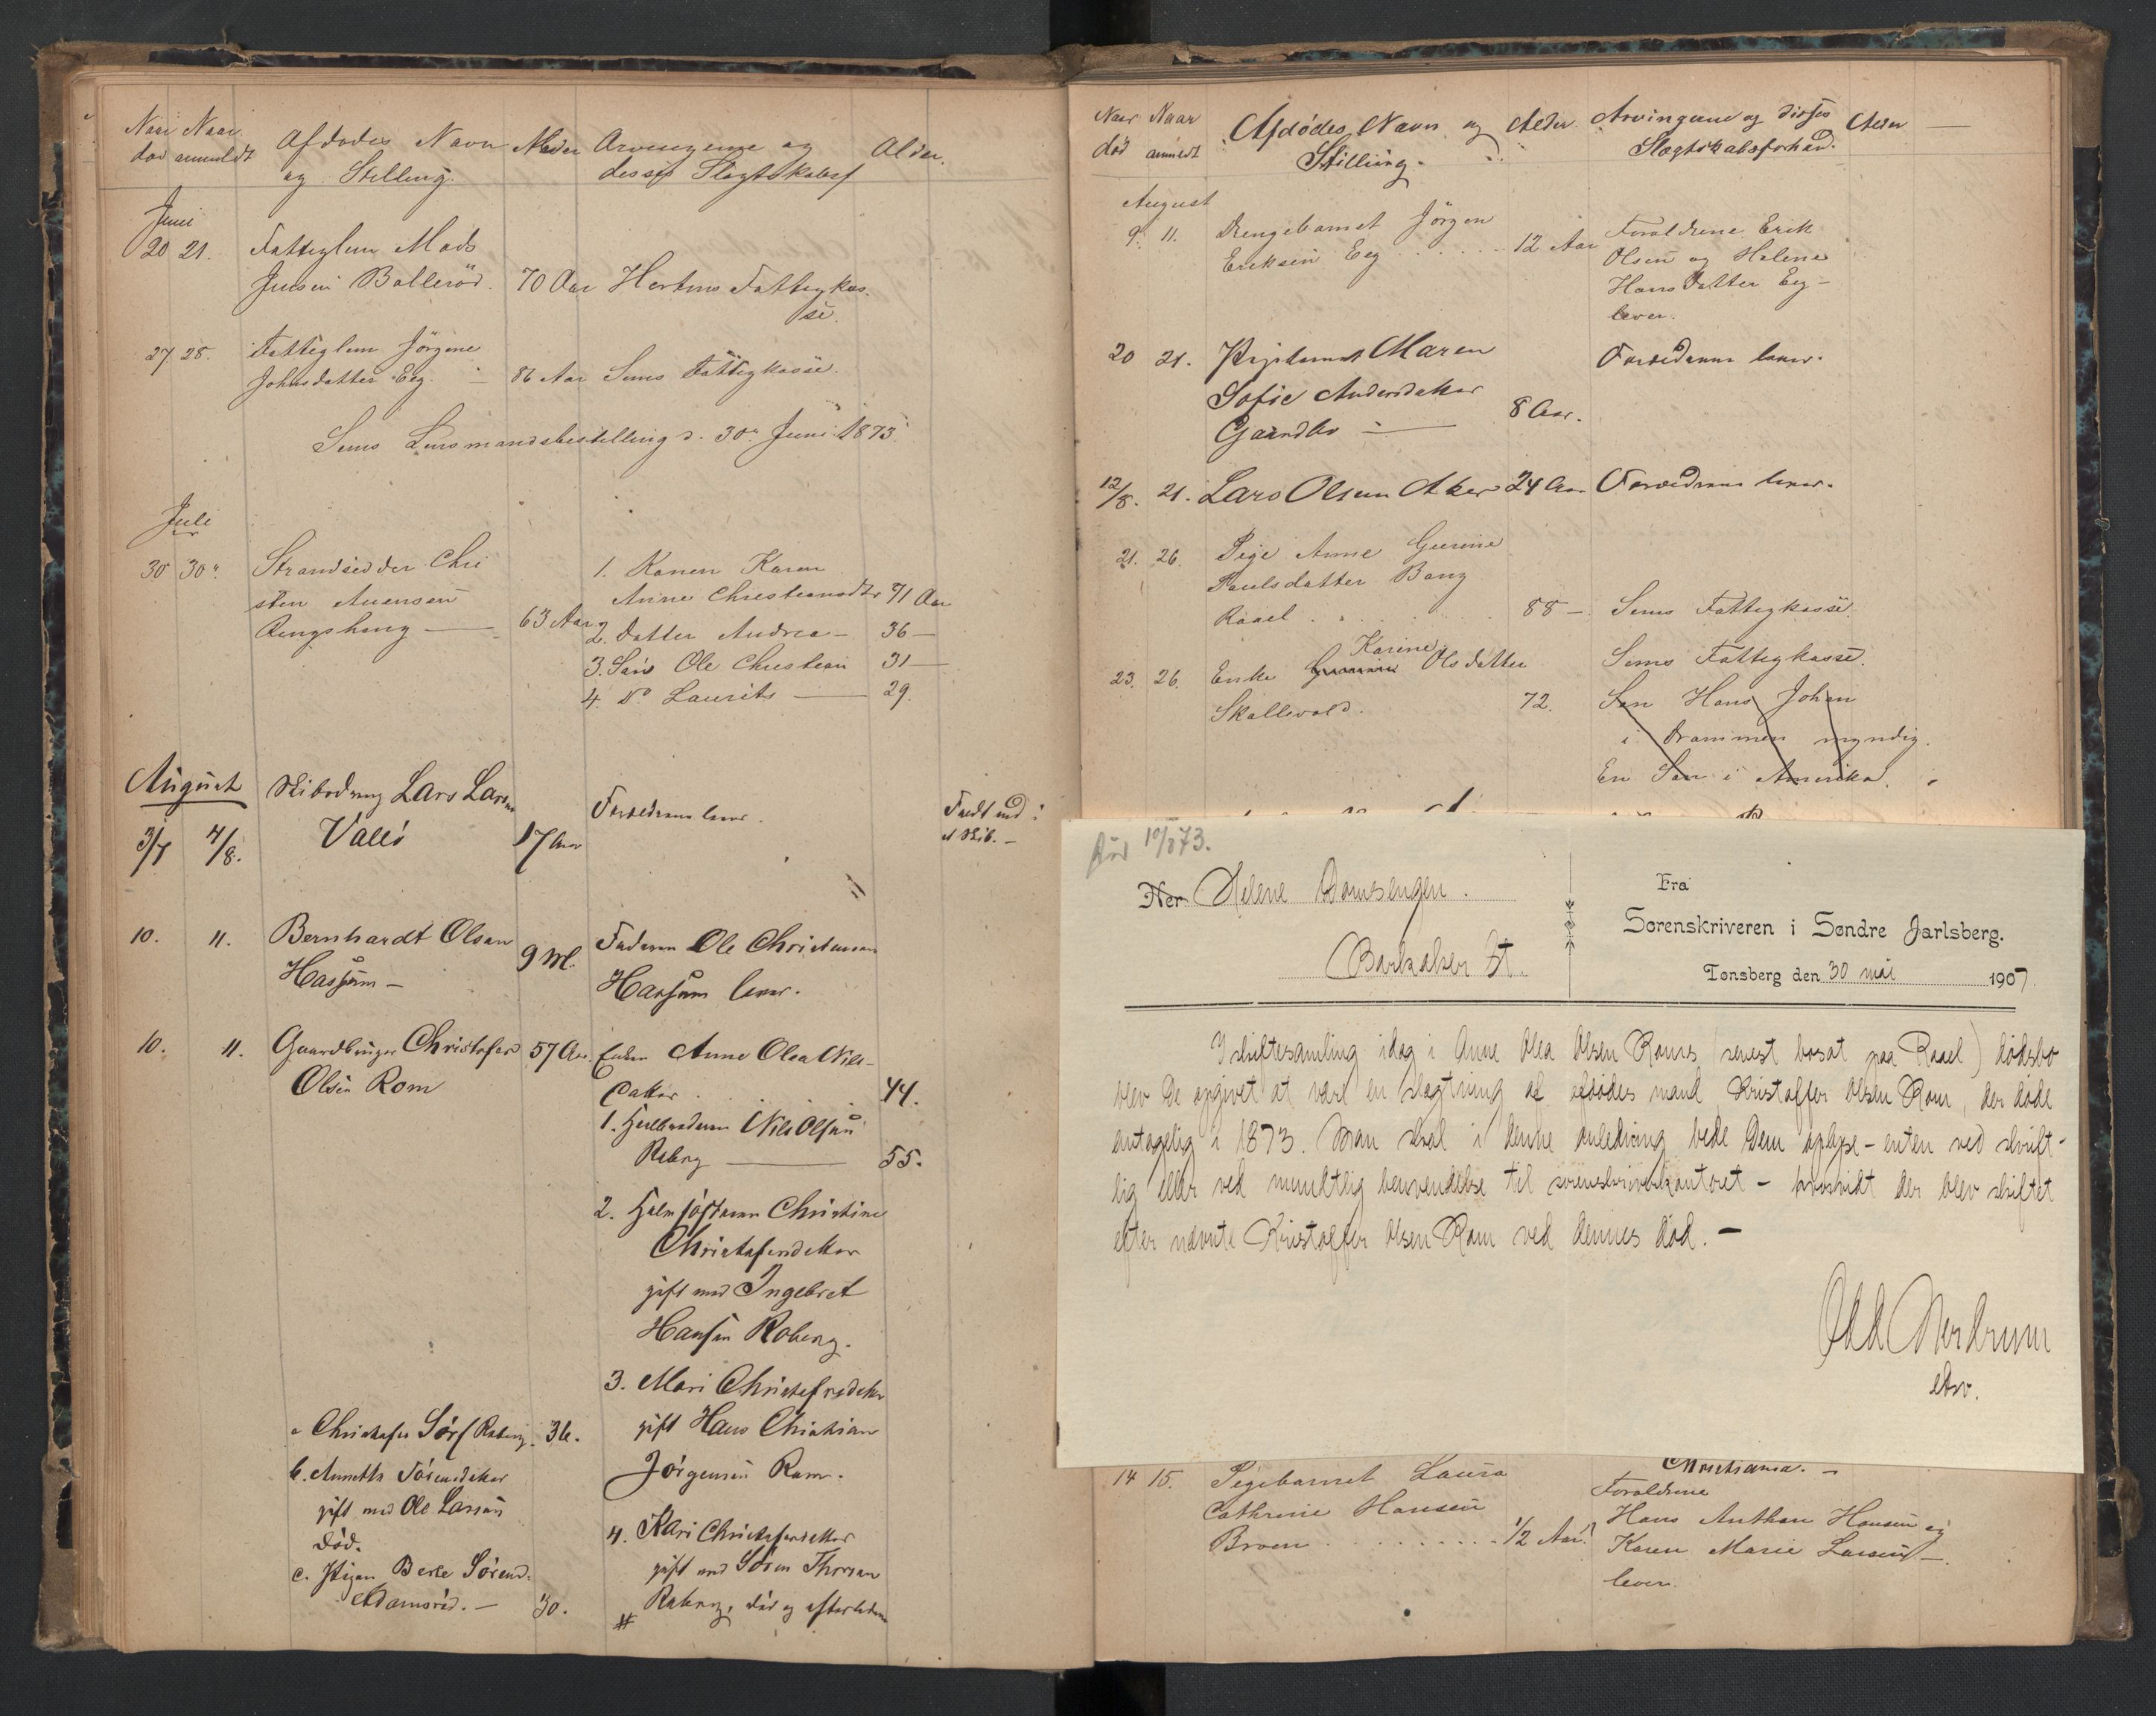 Naar Naar Afdødes Navn Alder Arvingerne og Alder.
død anmeldt og Stilling. disses Slægtskabsf
Juni
20 21. Fattiglem Mads
Jensen Bollerød. 70 Aar Hertens Fattigkas-
se.
27 28. Fattiglem Jörgine
Johnsdatter Eeg. — 86 Aar Sems Fattigkasse.
Sems Lensmandsbestilling d. 30te Juni 1873.
Juli
30 30te Strandsidder Chri
sten Auensen
Ringshoug — 63 Aar
1. Konen Karen
Anne Christiansdtr 71 Aar
2. Datter Andrea — 36 —
3. Søn Ole Christian 31 —
4. Do Laurits — 29.
August
3/7 4/8. Skibsdreng Lars Larsen
Vallö 17 Aar Forældrene lever. Faldt ud i
et Skib. —
10. 11. Bernhardt Olsen
Hassum — 9 M. Faderen Ole Christensen
Hassum lever.
10. 11. Gaardbruger Christofer
Olsen Rom 57 Aar. Enken Anne Olea Nils-
datter . 44.
1. Helbroderen Nils Olsen
Roberg — 55.
2. Halvsösteren Christine
Christofersdatter
gift med Ingebret
Hansen Roberg.
3. Mari Christofersdatter
gift Hans Christian
Jörgensen Rom.
4. Kari Christofersdatter
gift med Sören Thorsen
# Roberg, död og efterladt
a Christofer Sörs. Roberg. 36.
b. Annette Sörensdatter
gift med Ole Larsen
död.
c. Pigen Berte Sörensd.
Adamsröd. — 30.
Naar Naar Afdødes Navn og Alder. Arvingerne og disses Alder —
død anmeldt Stilling. Slægtskabsforhold.
August
9. 11. Drengebarnet Jörgen
Eriksen Eeg . . . . . 12 Aar
Forældrene Erik
Olsen og Helene
Hansdatter Eeg —
lever.
20 21. Pigebarnet Maren
Sofie Andersdatter
Gaardbo — 8 Aar.
Forældrene lever.
12/8. 21. Lars Olsen Aker 24 Aar Forældrene lever.
21. 26. Pige Anne Gurine
Paulsdatter Bang
Raael . . . . . . 88 — Sems Fattigkasse.
Karine
23. 26. Enke Gurine Olsdatter
Skallevold. 72.
Sems Fattigkasse.
Søn Hans Johan
i Drammen myndig.
En Søn i Amerika.
død 10/8 73.
Her Helene Domsengen.
Barkaker St.
Fra
Sorenskriveren i Søndre Jarlsberg.
Tønsberg den 30 mai 1907.
I skiftesamling idag i Anne Olea Olsen Roms (senest bosat paa Raael) dødsbo
blev De opgivet at være en slegtning af afdødes mand Kristoffer Olsen Rom, der døde
antagelig i 1873. Man skal i denne anledning bede Dem oplyse – enten ved skrift-
lig eller ved mundtlig henvendelse til sorenskriverkontoret – hvorvidt der blev skiftet
efter nævnte Kristoffer Olsen Rom ved dennes død. —
Odd Nerdrum
Christiania. —
14 15. Pigebarnet Laura
Cathrine Hansen
Broen . . . . . . . . 1/2 Aar.
Forældrene
Hans Anthon Hansen og
Karen Marie Larsen —.
lever.